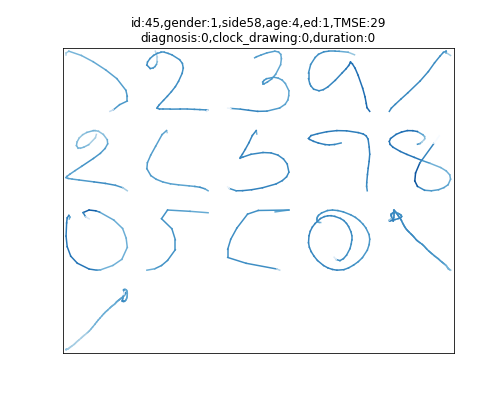 id:45,gender:1,side58,age:4,ed:1,TMSE:29
diagnosis:0,clock_drawing:0,duration:0
2 3 9 /
2 L 5 9 8
0 5 0